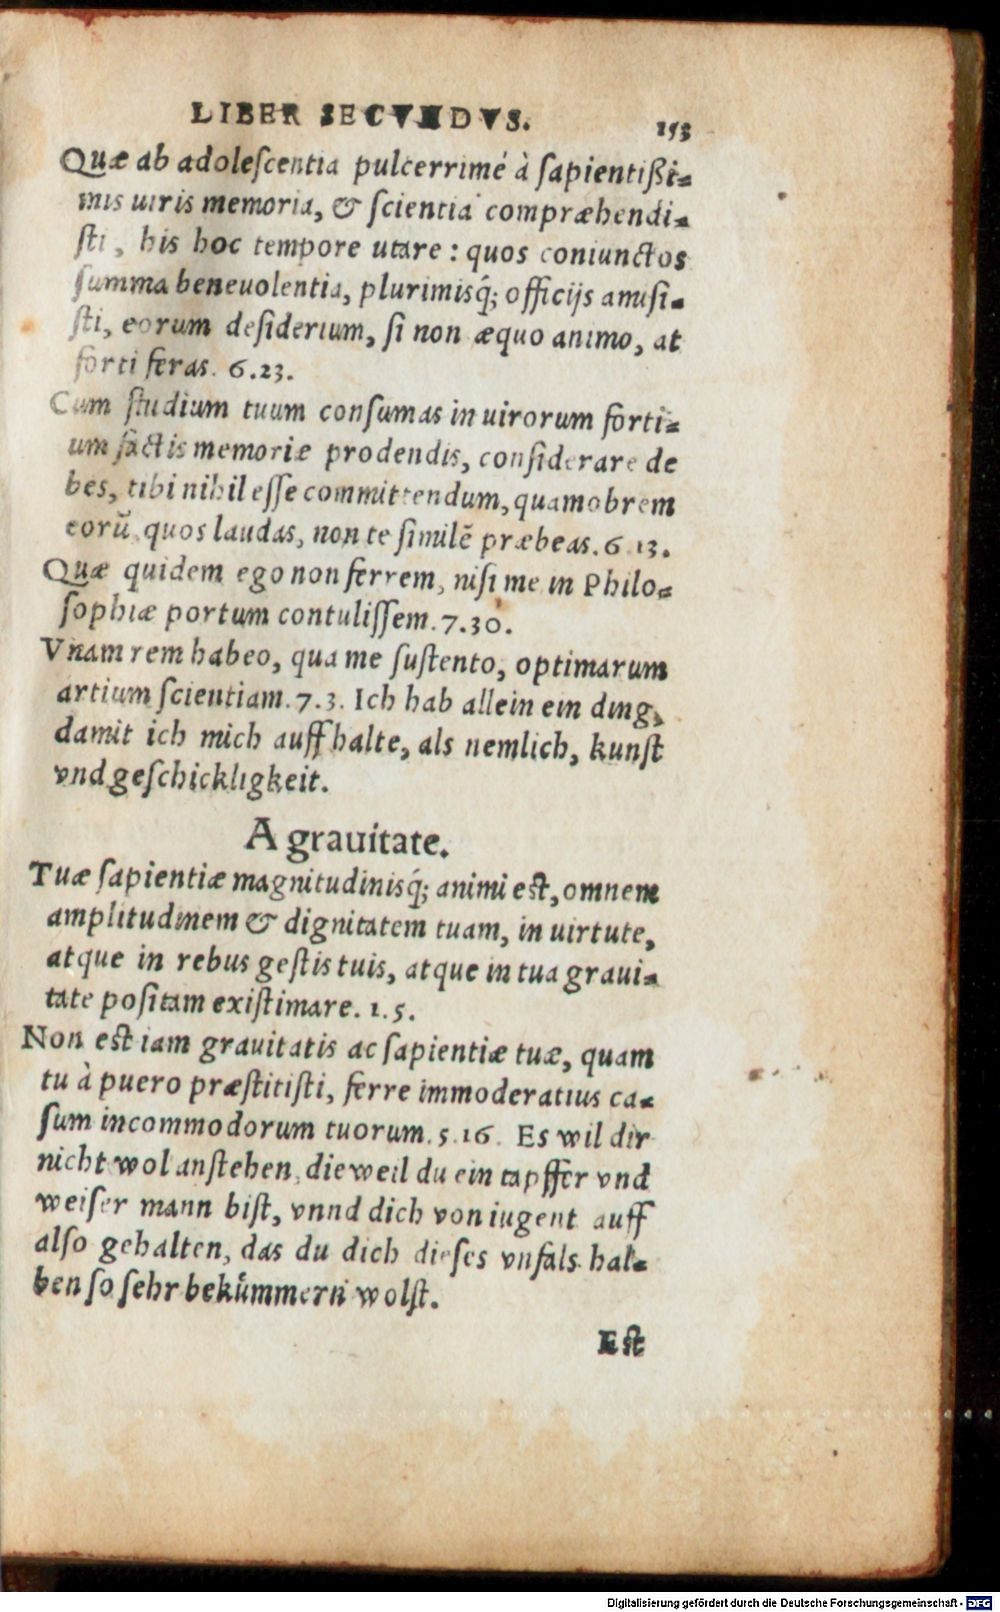 LIBER SECVNDVS. 153
Quæ ab adoleſcentia pulcerrimé à ſapientißi-
mis uiris memoria, & ſcientia compræhendi-
ſti, his hoc tempore utare : quos coniunctos
ſumma beneuolentia, plurimisq́; officijs amiſi-
ſti, eorum deſiderium, ſi non æquo animo, at
forti feras. 6.23.
Cum ſtudium tuum conſumas in uirorum forti-
um factis memoriæ prodendis, conſiderare de
bes, tibi nihil eſſe committendum, quamobrem
eorũ, quos laudas, non te ſimilẽ præbeas. 6.13.
Quæ quidem ego non ferrem, niſi me in Philo-
ſophiæ portum contuliſſem. 7.30.
Vnam rem habeo, qua me ſuſtento, optimarum
artium ſcientiam. 7.3. Ich hab allein ein ding,
damit ich mich auffhalte, als nemlich, kunſt
vnd geſchickligkeit.
A grauitate.
Tuæ ſapientiæ magnitudinisq́; animi eſt, omnem
amplitudinem & dignitatem tuam, in uirtute,
atque in rebus geſtis tuis, atque in tua graui-
tate poſitam exiſtimare. 1.5.
Non eſt iam grauitatis ac ſapientiæ tuæ, quam
tu à puero præſtitiſti, ferre immoderatius ca-
ſum incommodorum tuorum. 5.16. Es wil dir
nicht wol anſtehen, dieweil du ein tapffer vnd
weiſer mann biſt, vnnd dich von iugent auff
alſo gehalten, das du dich dieſes vnfals hal-
ben ſo ſehr bekuͤmmern wolſt.
Eſt
Digitalisierung gefördert durch die Deutsche Forschungsgemeinschaft - DFG